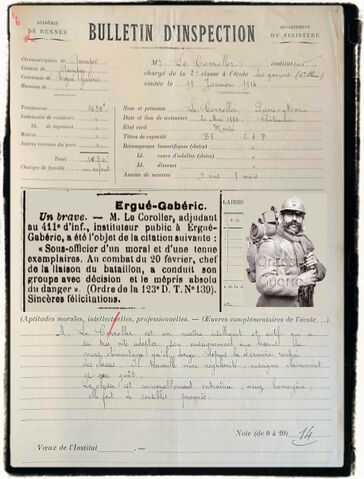 ACADÉMIE
DE RENNES
BULLETIN D'INSPECTION
DÉPARTEMENT
DU FINISTÈRE
Circonscription de Quimper
Canton de Quimper
Commune de Ergué-Gabéric
Hameau de
M. Le Corroller instituteur
chargé de la 2e classe à l'école des garçons
visitée le 19 Janvier 1914
Traitement
Indemnité de résidence
Id. de logement
Mairie
Autres revenus du poste
Total
Charges de famille
Nom et prénoms Le Corroller Louis-Marie
Date et lieu de naissance 20 Mai
État civil Marié
Titres de capacité BE CAP
Récompenses honorifiques (dates)
Id. cours d'adultes (dates)
Id. diverses
Années de service
Ergué-Gabéric.
Un brave. — M. Le Coroller, adjudant
au 411e d'inf., instituteur public à Ergué-
Gabéric, a été l'objet de la citation suivante :
« Sous-officier d'un moral et d'une tenue
exemplaires. Au combat du 20 février, chef
de la liaison du bataillon, a conduit son
groupe avec décision et le mépris absolu
du danger ». (Ordre de la 123e D. T. N° 139).
Sincères félicitations.
LAIRES
Grande
Guerre
(Aptitudes morales, intellectuelles, professionnelles. — Œuvres complémentaires de l'école...)
M. Le Corroller est un maître intelligent et actif qui
a très vite adopté son enseignement aux besoins du
cours élémentaire qu'il dirige depuis la dernière rentrée
des classes. Il travaille avec régularité,
et avec goût.
La classe est convenablement entraînée, assez homogène,
elle fait de sensibles progrès.
Note (de 0 à 20) 14
Vœux de l'Institut